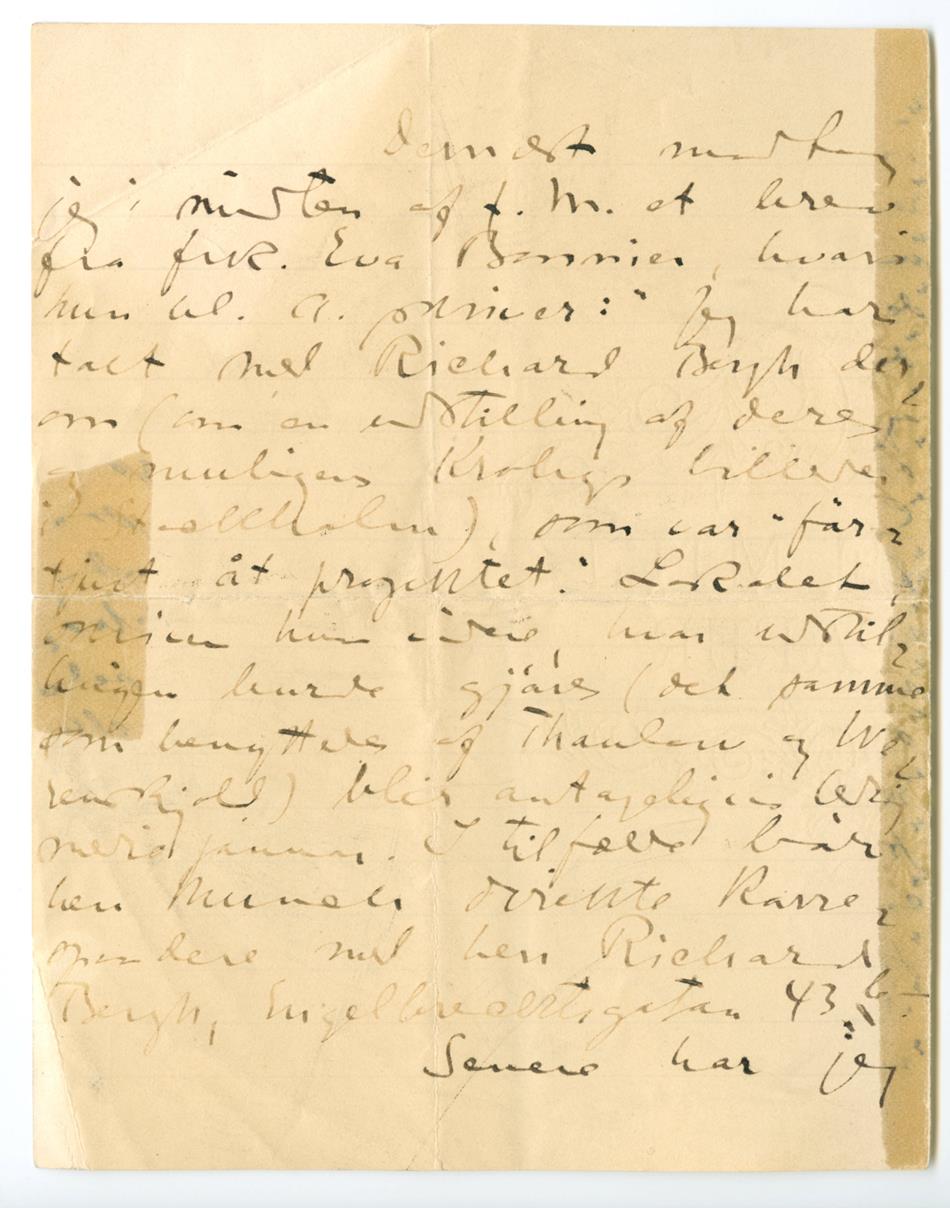 Dernæst modtog
jeg i midten af f. M. et brev
fra frk. Eva Bonnier, hvori
hun bl. a. skriver: "Jeg har
talt med Richard Bergh der
om (om en udstilling af deres
og muligens Krohgs billeder
i Stockholm), som var "för=
tjust åt projektet." Lokalet,
skriver hun videre, hvor udstil=
lingen burde gjöres (det samme
som benyttedes af Thaulow og We=
renskjold) blir antageligvis ledig
med januar. I tilfælde bör
herr Munch direkte korre=
spondere med herr Richard
Bergh, Engelbrecktsgatan 43.b"
Senere har jeg